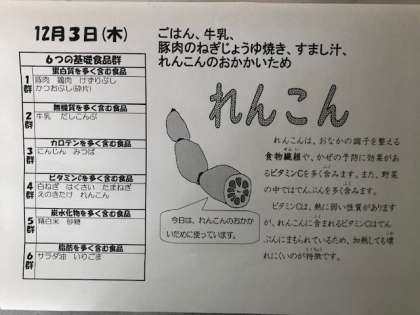 12月3日(木)
ごはん、牛乳、
豚肉のねぎじょうゆ焼き、すまし汁、
れんこんのおかかいため
6つの基礎食品群
1群
蛋白質を多く含む食品
豚肉 鶏肉 けずりぶし
かつおぶし(砕片)
2群
無機質を多く含む食品
牛乳 だしこんぶ
3群
カロテンを多く含む食品
にんじん みつば
4群
ビタミンCを多く含む食品
白ねぎ はくさい たまねぎ
えのきたけ れんこん
5群
炭水化物を多く含む食品
精白米 砂糖
6群
脂肪を多く含む食品
サラダ油 いりごま
れんこん
れんこんは、おなかの調子を整える
食物繊維や、かぜの予防に効果があ
るビタミンCを多く含みます。また、野菜
の中ではでんぷんを多く含みます。
ビタミンCは、熱に弱い性質があります
が、れんこんに含まれるビタミンCはでん
ぷんにまもられているため、加熱しても壊
れにくいのが特徴です。
今日は、れんこんのおかか
いために使っています。